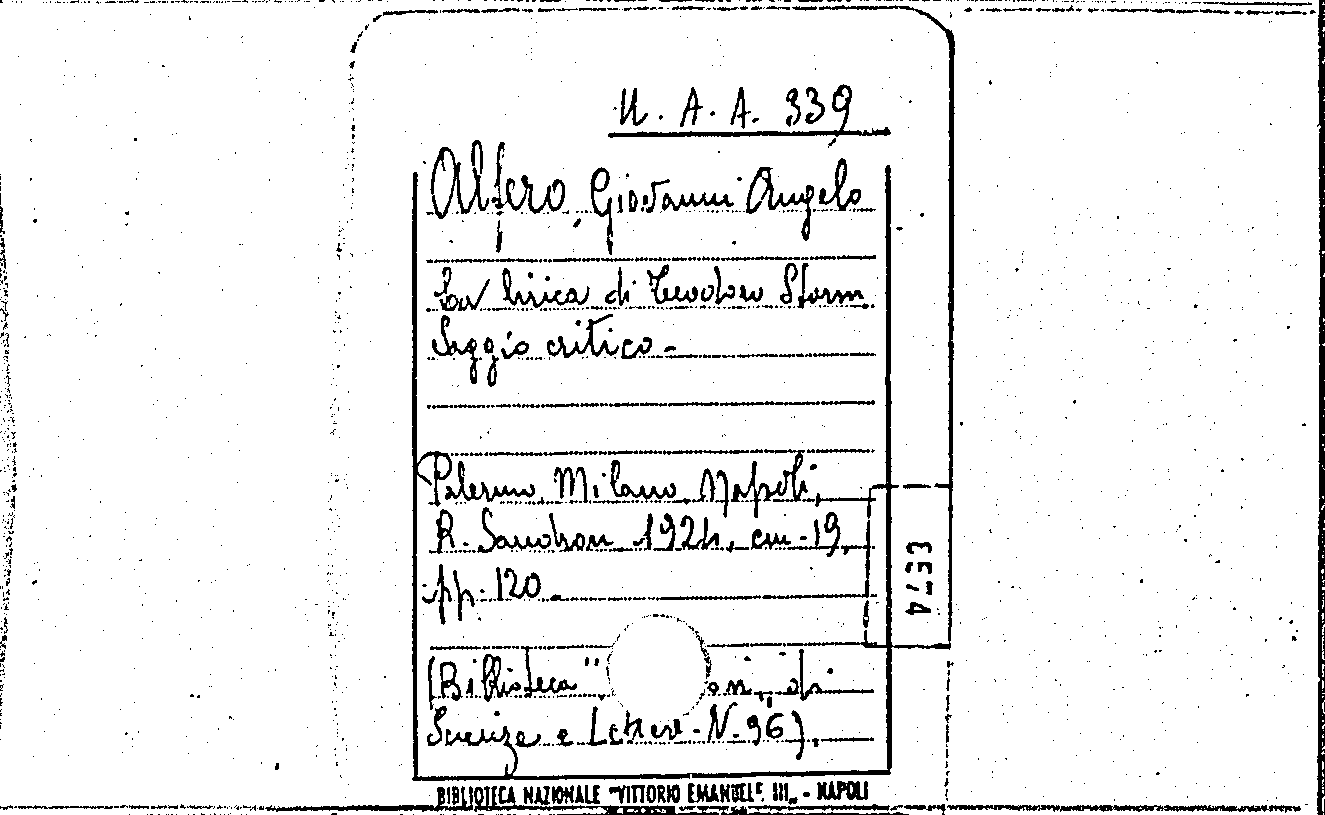 U. A. A. 339
Alfero, Giovanni Angelo
La lirica di Teodoro Storm
Saggio critico -
Palermo, Milano, Napoli,
R. Sandron 1924, cm. 19,
pp. 120.
(Biblioteca " on, di
Scienze e Lettere - N. 96).
EE74
BIBLIOTECA NAZIONALE "VITTORIO EMANUELE III" - NAPOLI